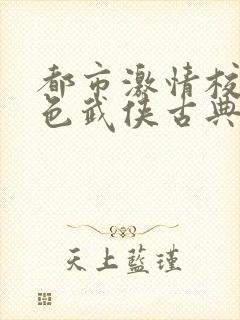 都市激情校
色武侠古典
天上蓝瑾